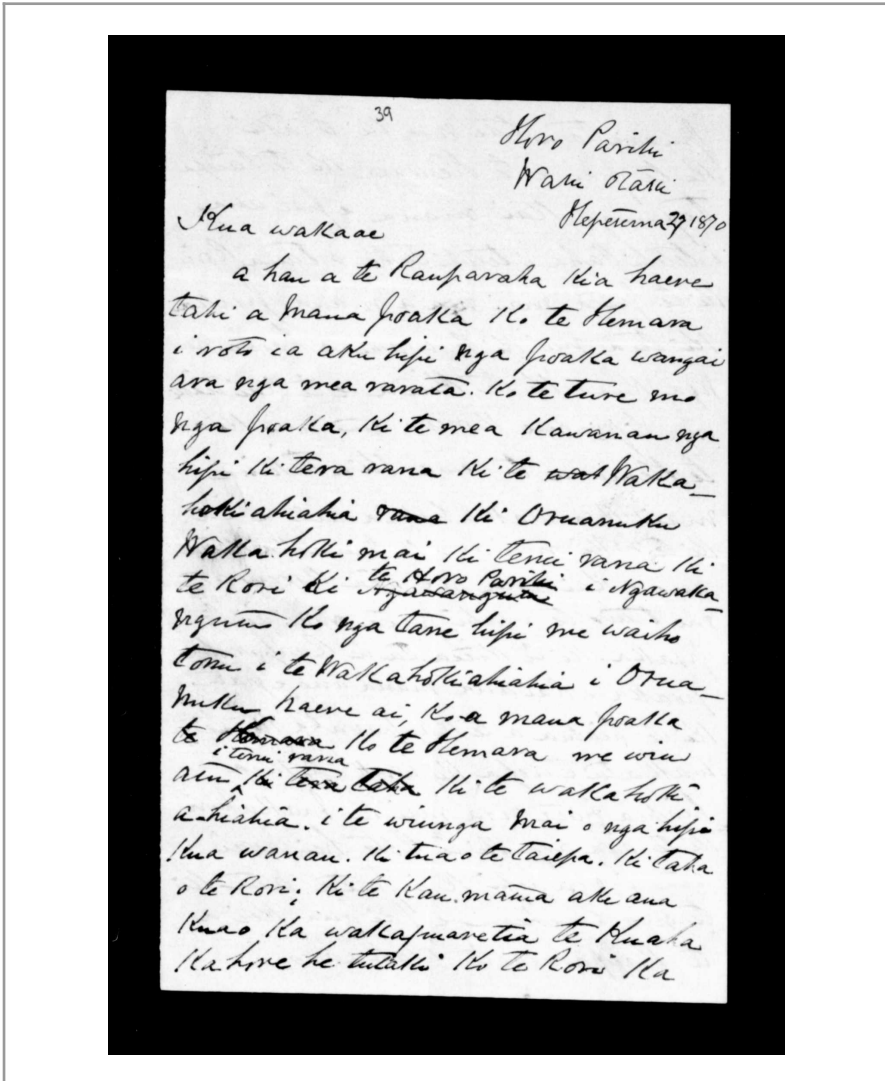 39
Horo Pariki
Waki Otāki
Hepetema 29 1870
Kua wakaae
a hau a te Rauparaha kia haere
tahi a Mana poaka Ko te Hemara
i roto i a aku hipi nga poaka wangai
ara nga mea rarata. Ko te ture mo
nga poaka, Ki te mea Kawanau nga
hipi Ki tera rana Ki te wat Waka-
hokiahiahia rana Ki Oruanuku
Waka hoki mai Ki tenei rana Ki
te Rori Ki te Horo Pariki i Ngawaka-
ngutu Ko nga tane hipi me waiho
tonu i te Wakahokiahiahia i Orua-
nuku haere ai, Ko a mana poaka
te Hemara Ko te Hemara me wiu
i tenei rana
atu Ki tera taha Ki te wakahoki
ahiahia. i te wiunga Mai o nga hipi
Kua wanau. Ki tua o te taiepa. Ki taha
o te Rori; Ki te Kau mama ake ana
Kuao Ka wakapuaretia te Kuaha
Kahore he tutaki Ko te Rori Ka